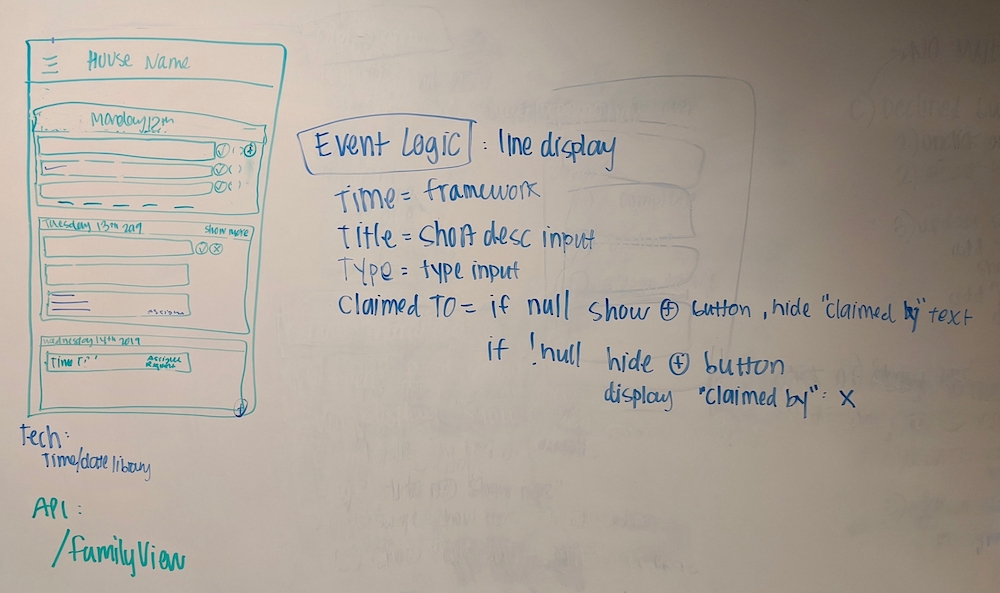 House Name
Monday 12th
Tuesday 13th 2019
show more
Assignee
Wednesday 14th 2019
Time
Assignee
Request
Tech:
Time/date library
API:
/familyView
Event Logic : line display
Time = framework
Title = short desc input
Type = type input
Claimed To = if null show ⊕ button, hide "claimed by" text
if !null hide ⊕ button
display "claimed by": X